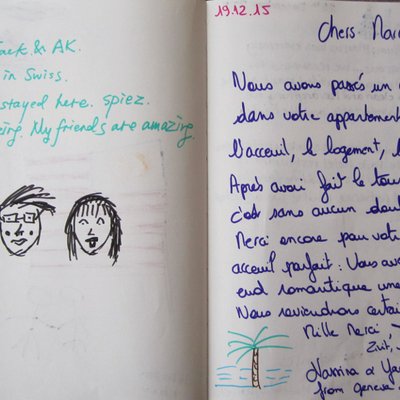 Jack & AK.
in Swiss.
stayed here. Spiez.
eing. My friends are amazing.
19.12.15
Chers Marc
Nous avons passés un
dans votre appartement
L'acceuil, le logement, l
Après avoir fait le tour
c'est sans aucun dout
Merci encore pour votr
acceuil parfait : Vous av
end romantique une
Nous reviendrons certai
Mille Merci,
Nassima & Ya
from geneva